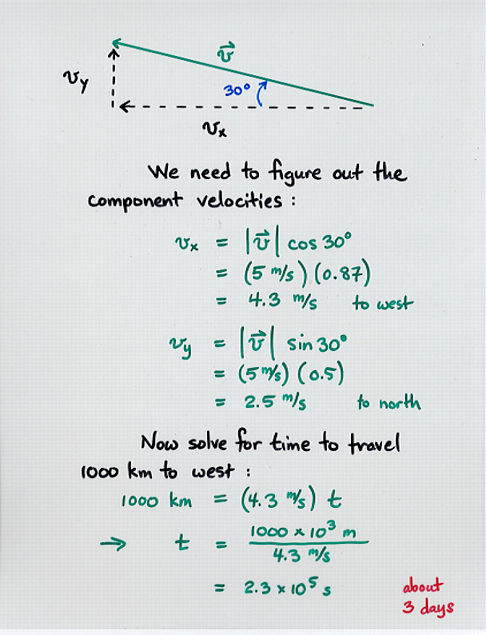 v⃗
v_y
30°
v_x
We need to figure out the
component velocities :
v_x = |v⃗| cos 30°
= (5 m/s) (0.87)
= 4.3 m/s to west
v_y = |v⃗| sin 30°
= (5 m/s) (0.5)
= 2.5 m/s to north
Now solve for time to travel
1000 km to west :
1000 km = (4.3 m/s) t
→ t = 1000 × 10³ m / 4.3 m/s
= 2.3 × 10⁵ s
about
3 days